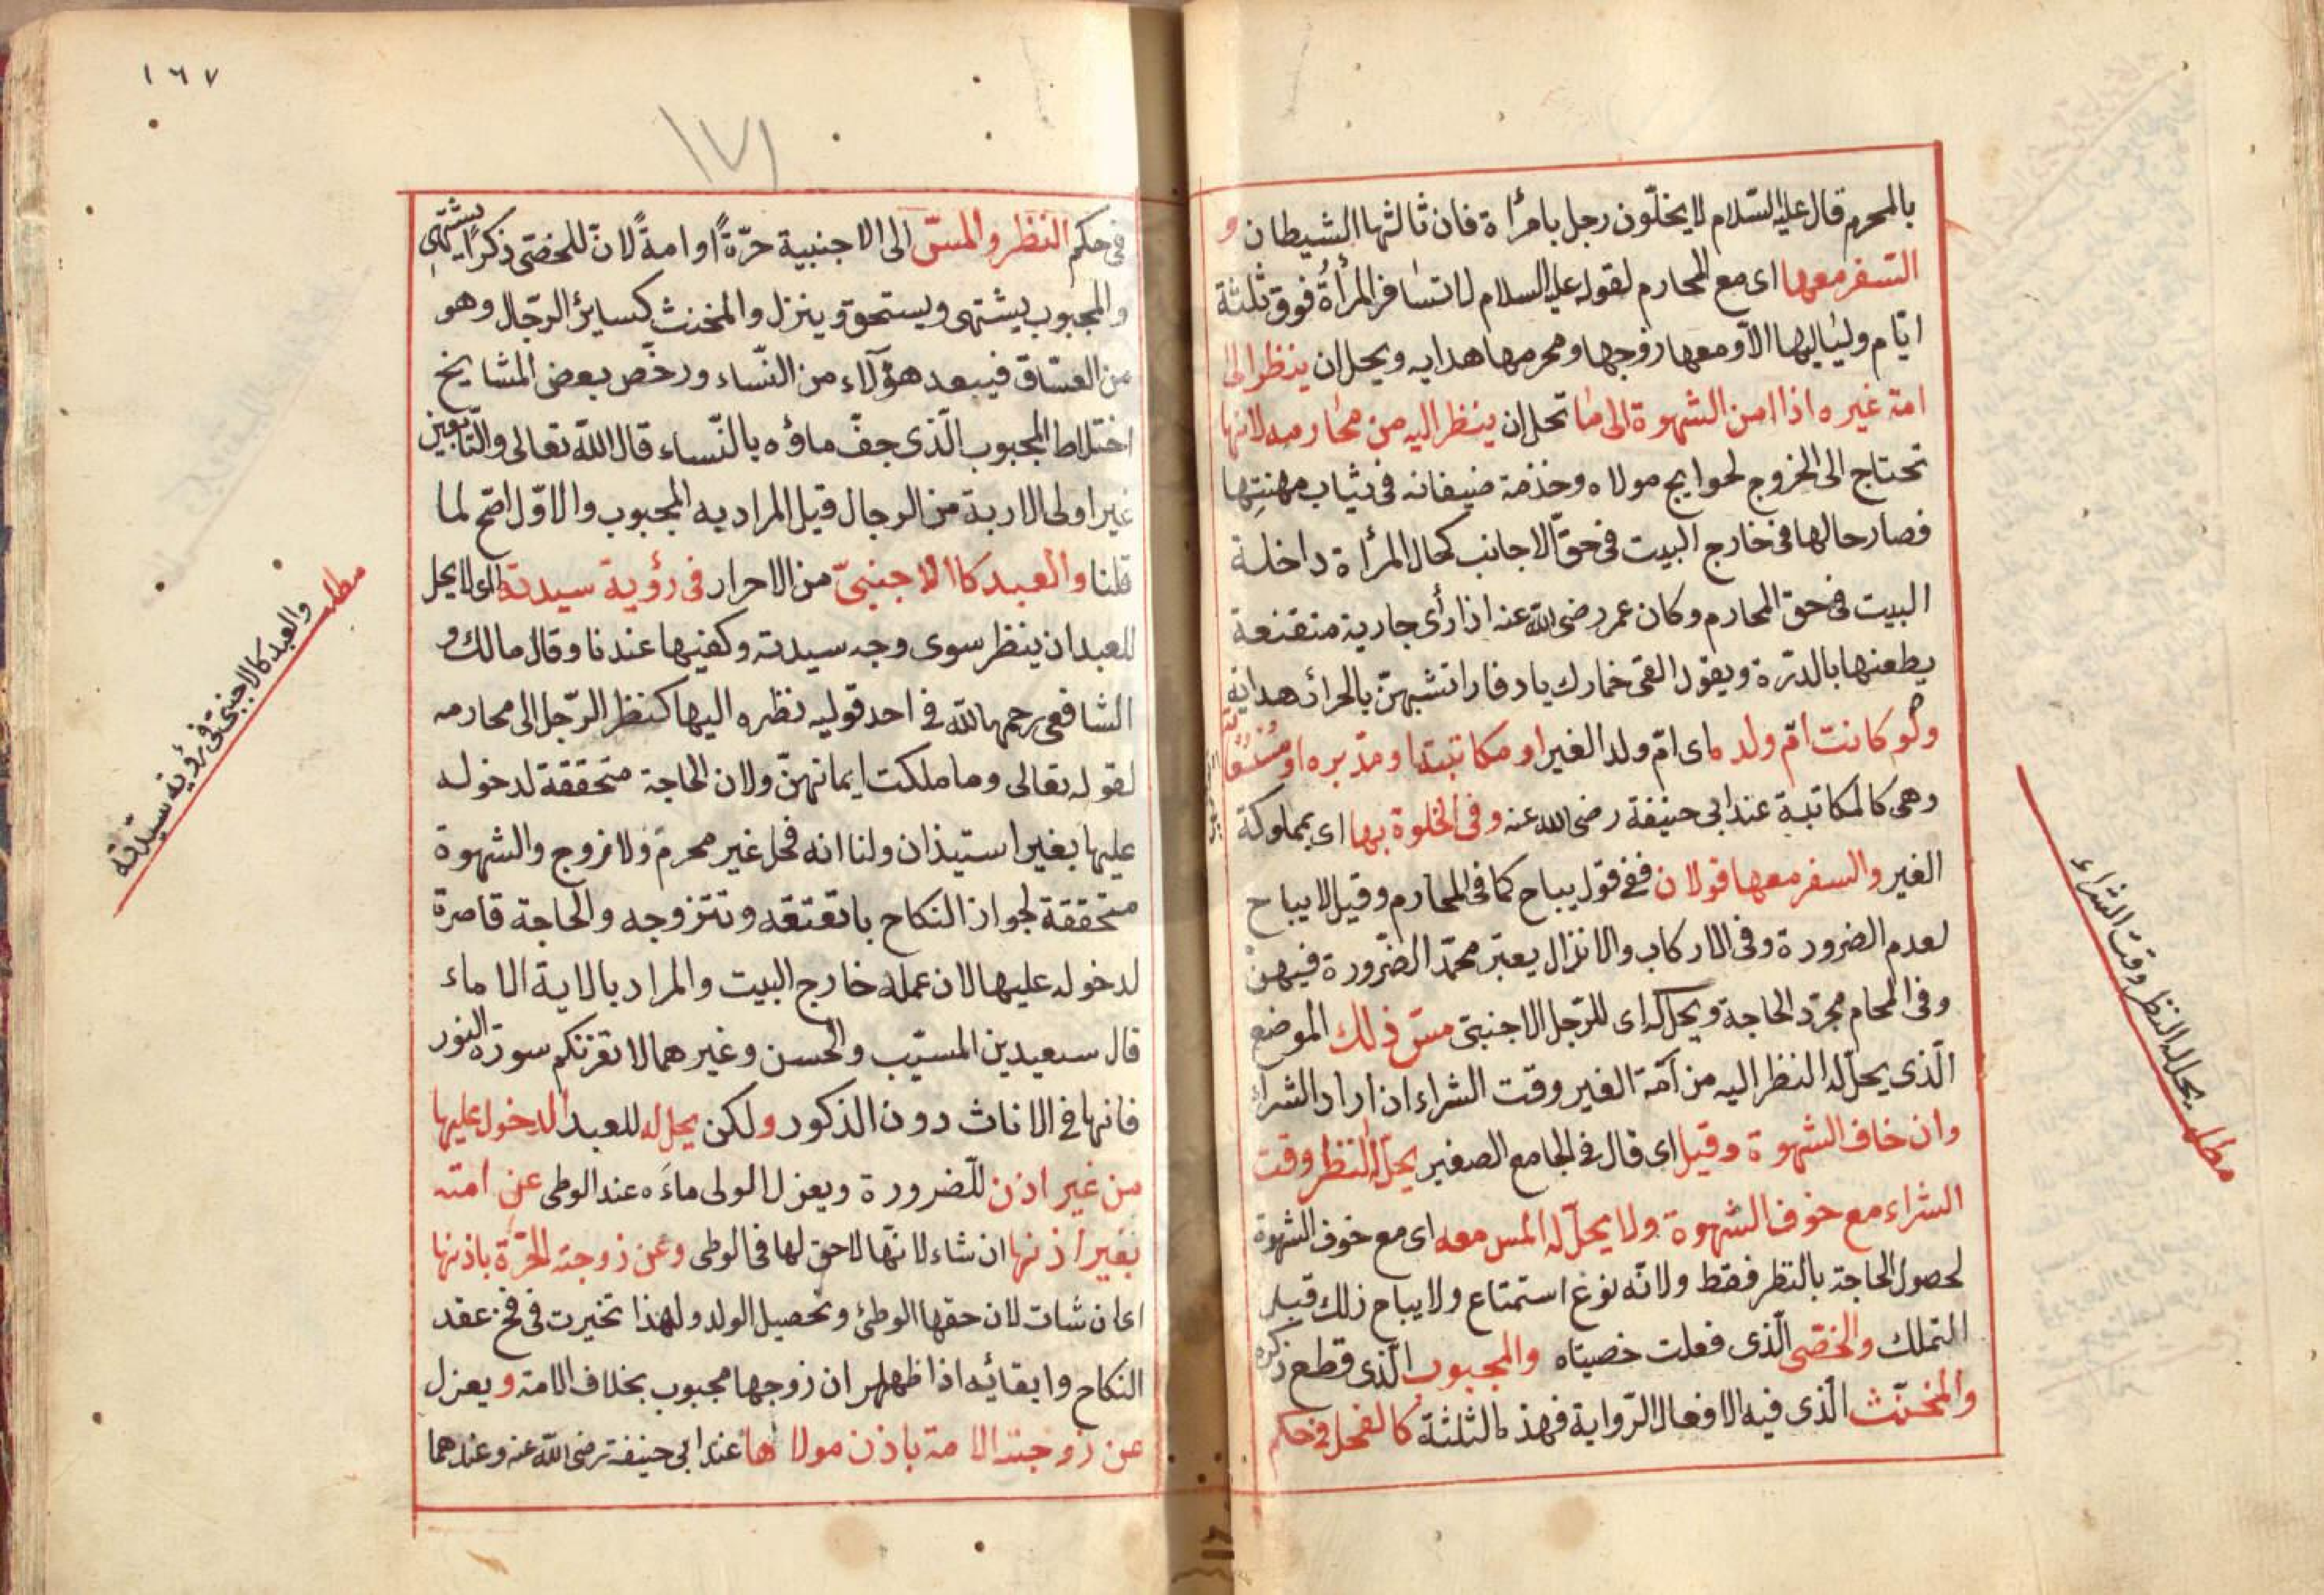 بالمحرم قال عليه السّلام لا يخلّون رجل بامرأة فان ثالثها الشيطان و
السّفر معها اى مع المحارم لقوله عليه السلام لا تسافر المرأة فوق ثلثة
ايّام ولياليها الّا ومعها زوجها ومحرمها هدايه ويحل ان ينظر الى
امة غيره اذا امن الشهوة الى ما تحل ان ينظر اليه من محارمه لانها
تحتاج الى الخروج لحوايج مولاه وخذمة ضيفانه فى ثياب مهنتها
فصار حالها فى خارج البيت فى حقّ الاجانب كحال المرأة داخلة
البيت فى حق المحارم وكان عمر رضى الله عنه اذا رأى جارية متقنعة
يطعنها بالدرّة ويقول القى خمارك يا دفار اتشبهنّ بالحرائر هدايه
ولو كانت امّ ولده اى امّ ولد الغير او مكاتبته او مدّبره او
وهى كالمكاتبة عند ابى حنيفة رضى الله عنه وفى الخلوة بها اى بمملوكة
الغير والسفر معها قولان ففى قول يباح كما فى المحارم وقيل لا يباح
لعدم الضرورة وفى الاركاب والانزال يعتبر محمّد الضّرورة فيهنّ
وفى المحام مجرّد الحاجة ويحل له اى للرّجل الاجنبىّ مسّ ذلك الموضع
الّذى يحلّ له النظر اليه من آمّة الغير وقت الشراء ان اراد الشراء
وان خاف الشهوة وقيل اى قال فى الجامع الصغير يحلّ له النظر وقت
الشراء مع خوف الشهوة ولا يحلّ له المس معه اى مع خوف الشهوة
لحصول الحاجة بالنظر فقط ولانّه نوع استمتاع ولا يباح ذلك قبل
التملك والخصّى الّذى فعلت خصيتاه والمجبوب الّذى قطع ذكره
والمخنّث الّذى فيه الافعال الرّواية فهذه الثلثة كالفحل فى حكم
مطلب يحل له النظر وقت الشراء
١٦٧
١٧١
فى حكم النظر والمسّ الى الاجنبية حرّةً او امةً لانّ للخصّى ذكرًا يشتهى
والمجبوب يشتهى ويستحق وينزل والمخنث كسايرُ الرّجال وهو
من الفسّاق فيبعد هؤلآء من النّساء ورخّص بعض المشايخ
اختلاط المجبوب الّذى جفّ ماؤه بالنّساء قال اللّه تعالى والتّابعين
غير اولى الاربة من الرجال قيل المراد به المجبوب والاوّل اصّح لما
قلنا والعبد كاالاجنبىّ من الاحرار فى رؤية سيدته اى لا يحل
للعبد ان ينظر سوى وجه سيدته وكفيها عندنا وقال مالك و
الشافعى رحمهما اللّه فى احد قوليه نظره اليها كنظر الرّجل الى محارمه
لقوله تعالى وما ملكت ايمانهنّ ولان الحاجة متحققة لدخوله
عليها بغير استيذان ولنا انه فحل غير محرم ولا زوج والشهوة
متحققة لجواز النكاح باتعتقه وتتزوجه والحاجة قاصرة
لدخوله عليها لان عمله خارج البيت والمراد بالاية الاماء
قال سعيد بن المسيّب والحسن وغيرهما لا تغرنكم سورة النور
فانها فى الاناث دون الذكور ولكن يحل له للعبد الدخول عليها
من غير اذن للّضرورة ويعزل المولى ماءَه عند الوطى عن امته
بغير اذنها ان شاء لانّها لا حق لها فى الوطى وعن زوجته الحرّة باذنها
اى ان شات لان حقها الوطئ وتحصيل الولد ولهذا تخيرت فى فخ عقد
النكاح وابقائه اذا ظهلهر ان زوجها مجبوب بخلاف الامة ويعزل
عن زوجته الامة باذن مولاها عند ابى حنيفة رضى اللّه عنه وعندهما
مطلب والعبد كالاجنبىّ فى رؤية سيّدته